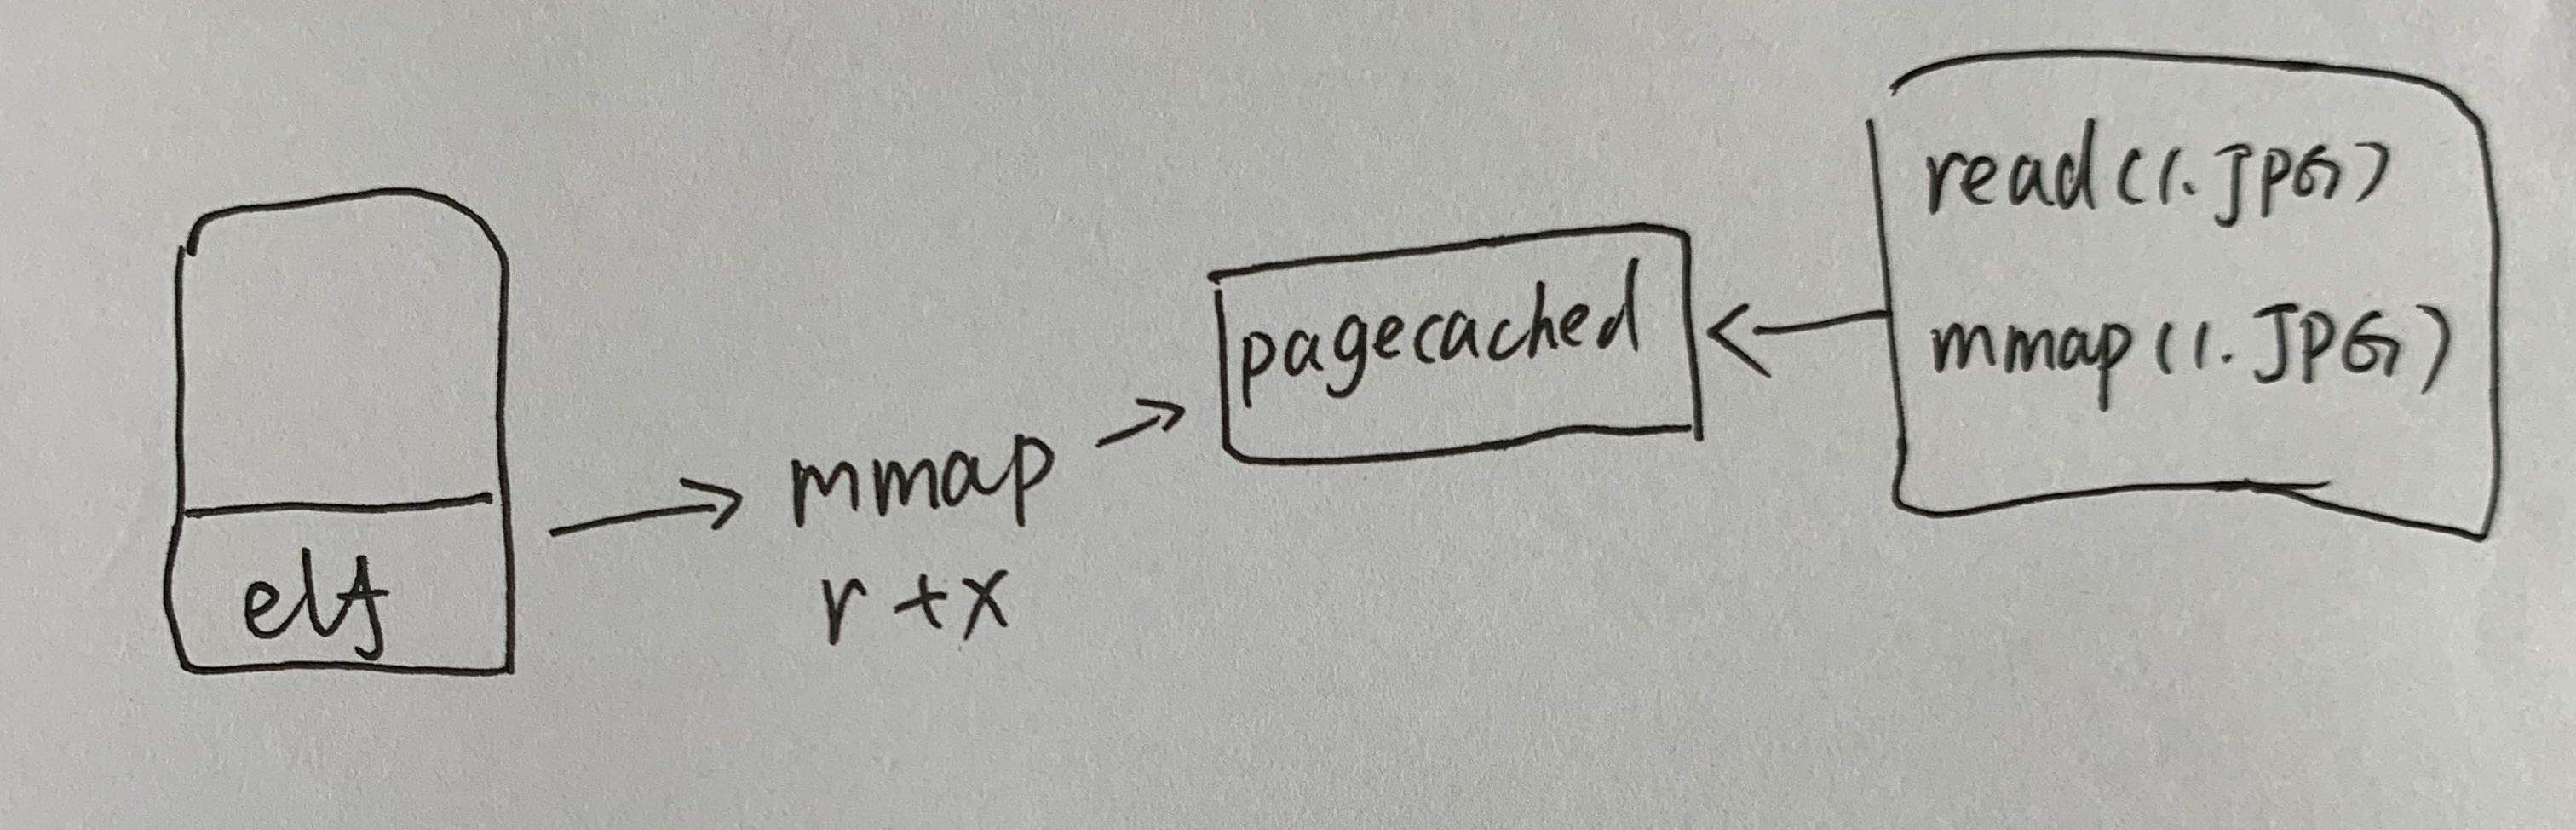 elf
mmap
r+x
pagecached
read(1.JPG)
mmap(1.JPG)